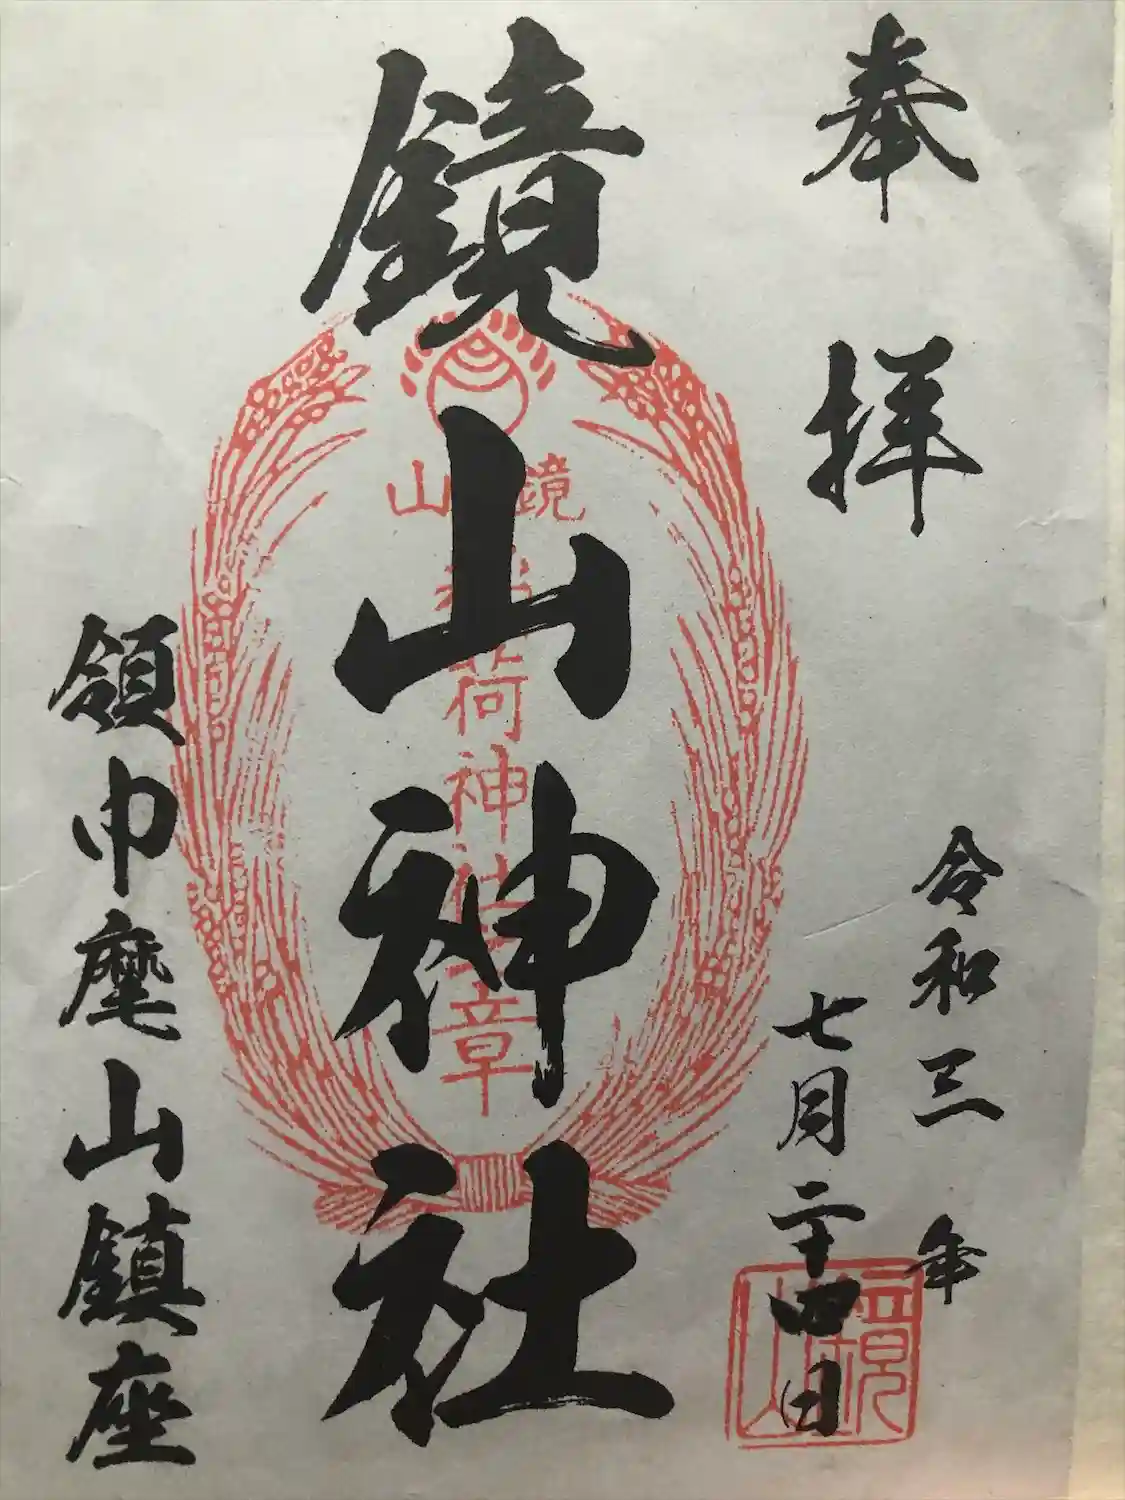 奉拝
令和三年
七月二十四日
鏡山神社
領巾麾山鎮座
鏡山
稲荷神社章
鏡山